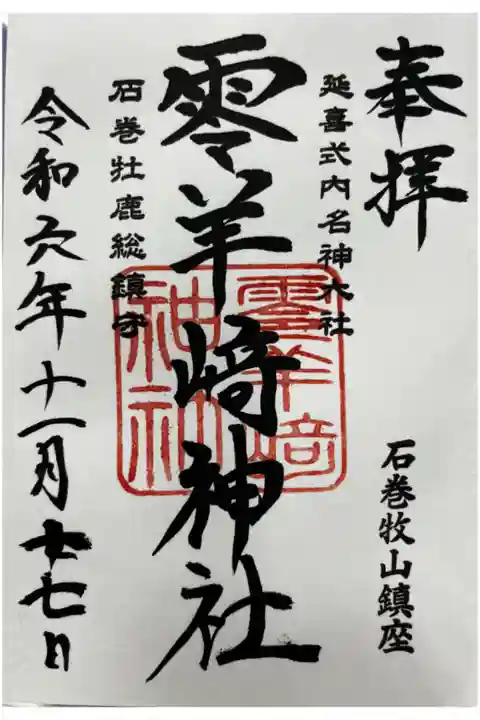 奉拝
石巻牧山鎮座
延喜式内名神大社
零羊﨑神社
零羊﨑
神社
石巻牡鹿総鎮守
令和六年十一月七日